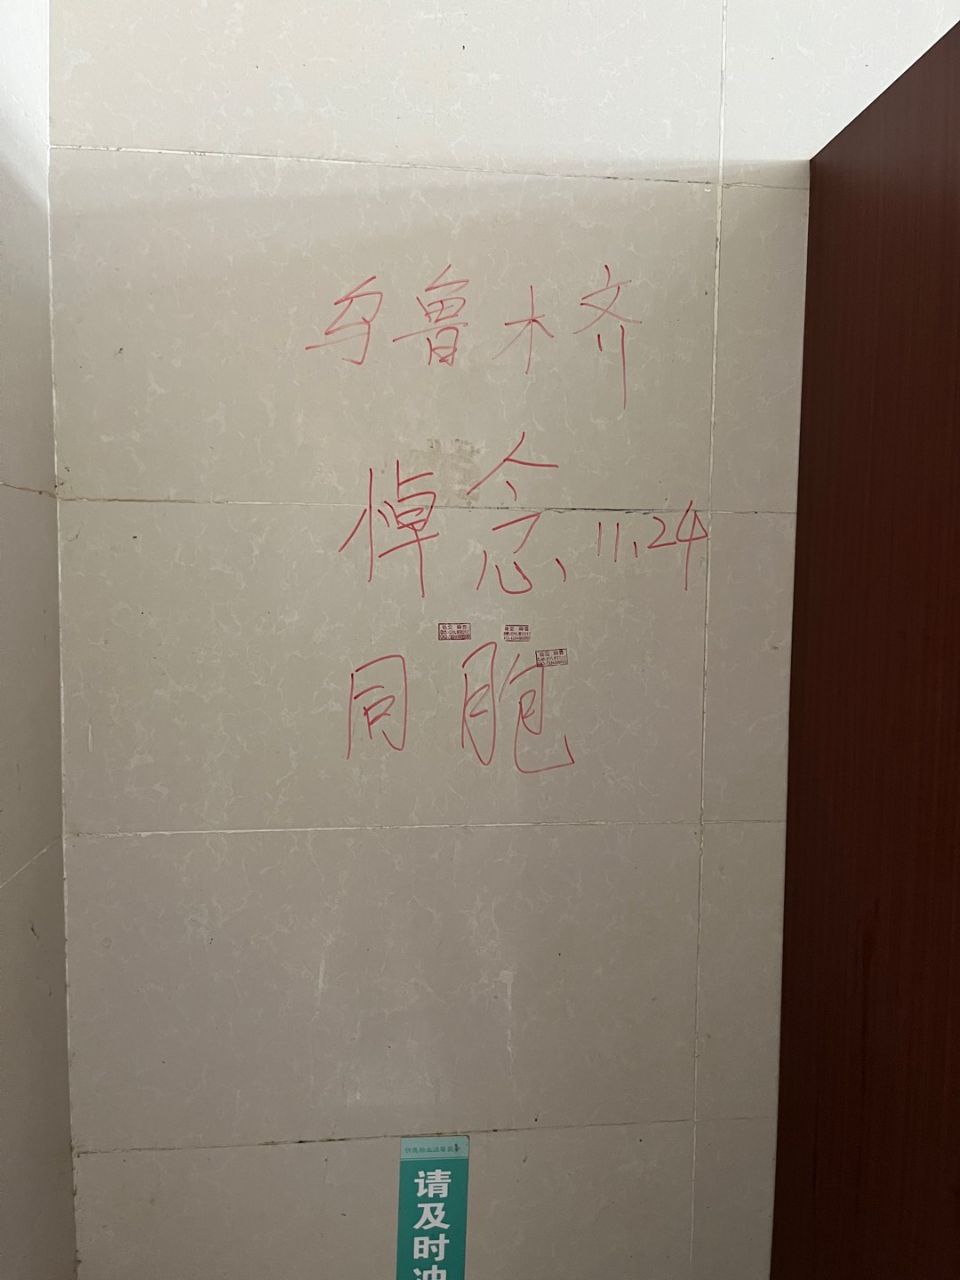 乌鲁木齐
悼念 11.24
同胞
请及时冲